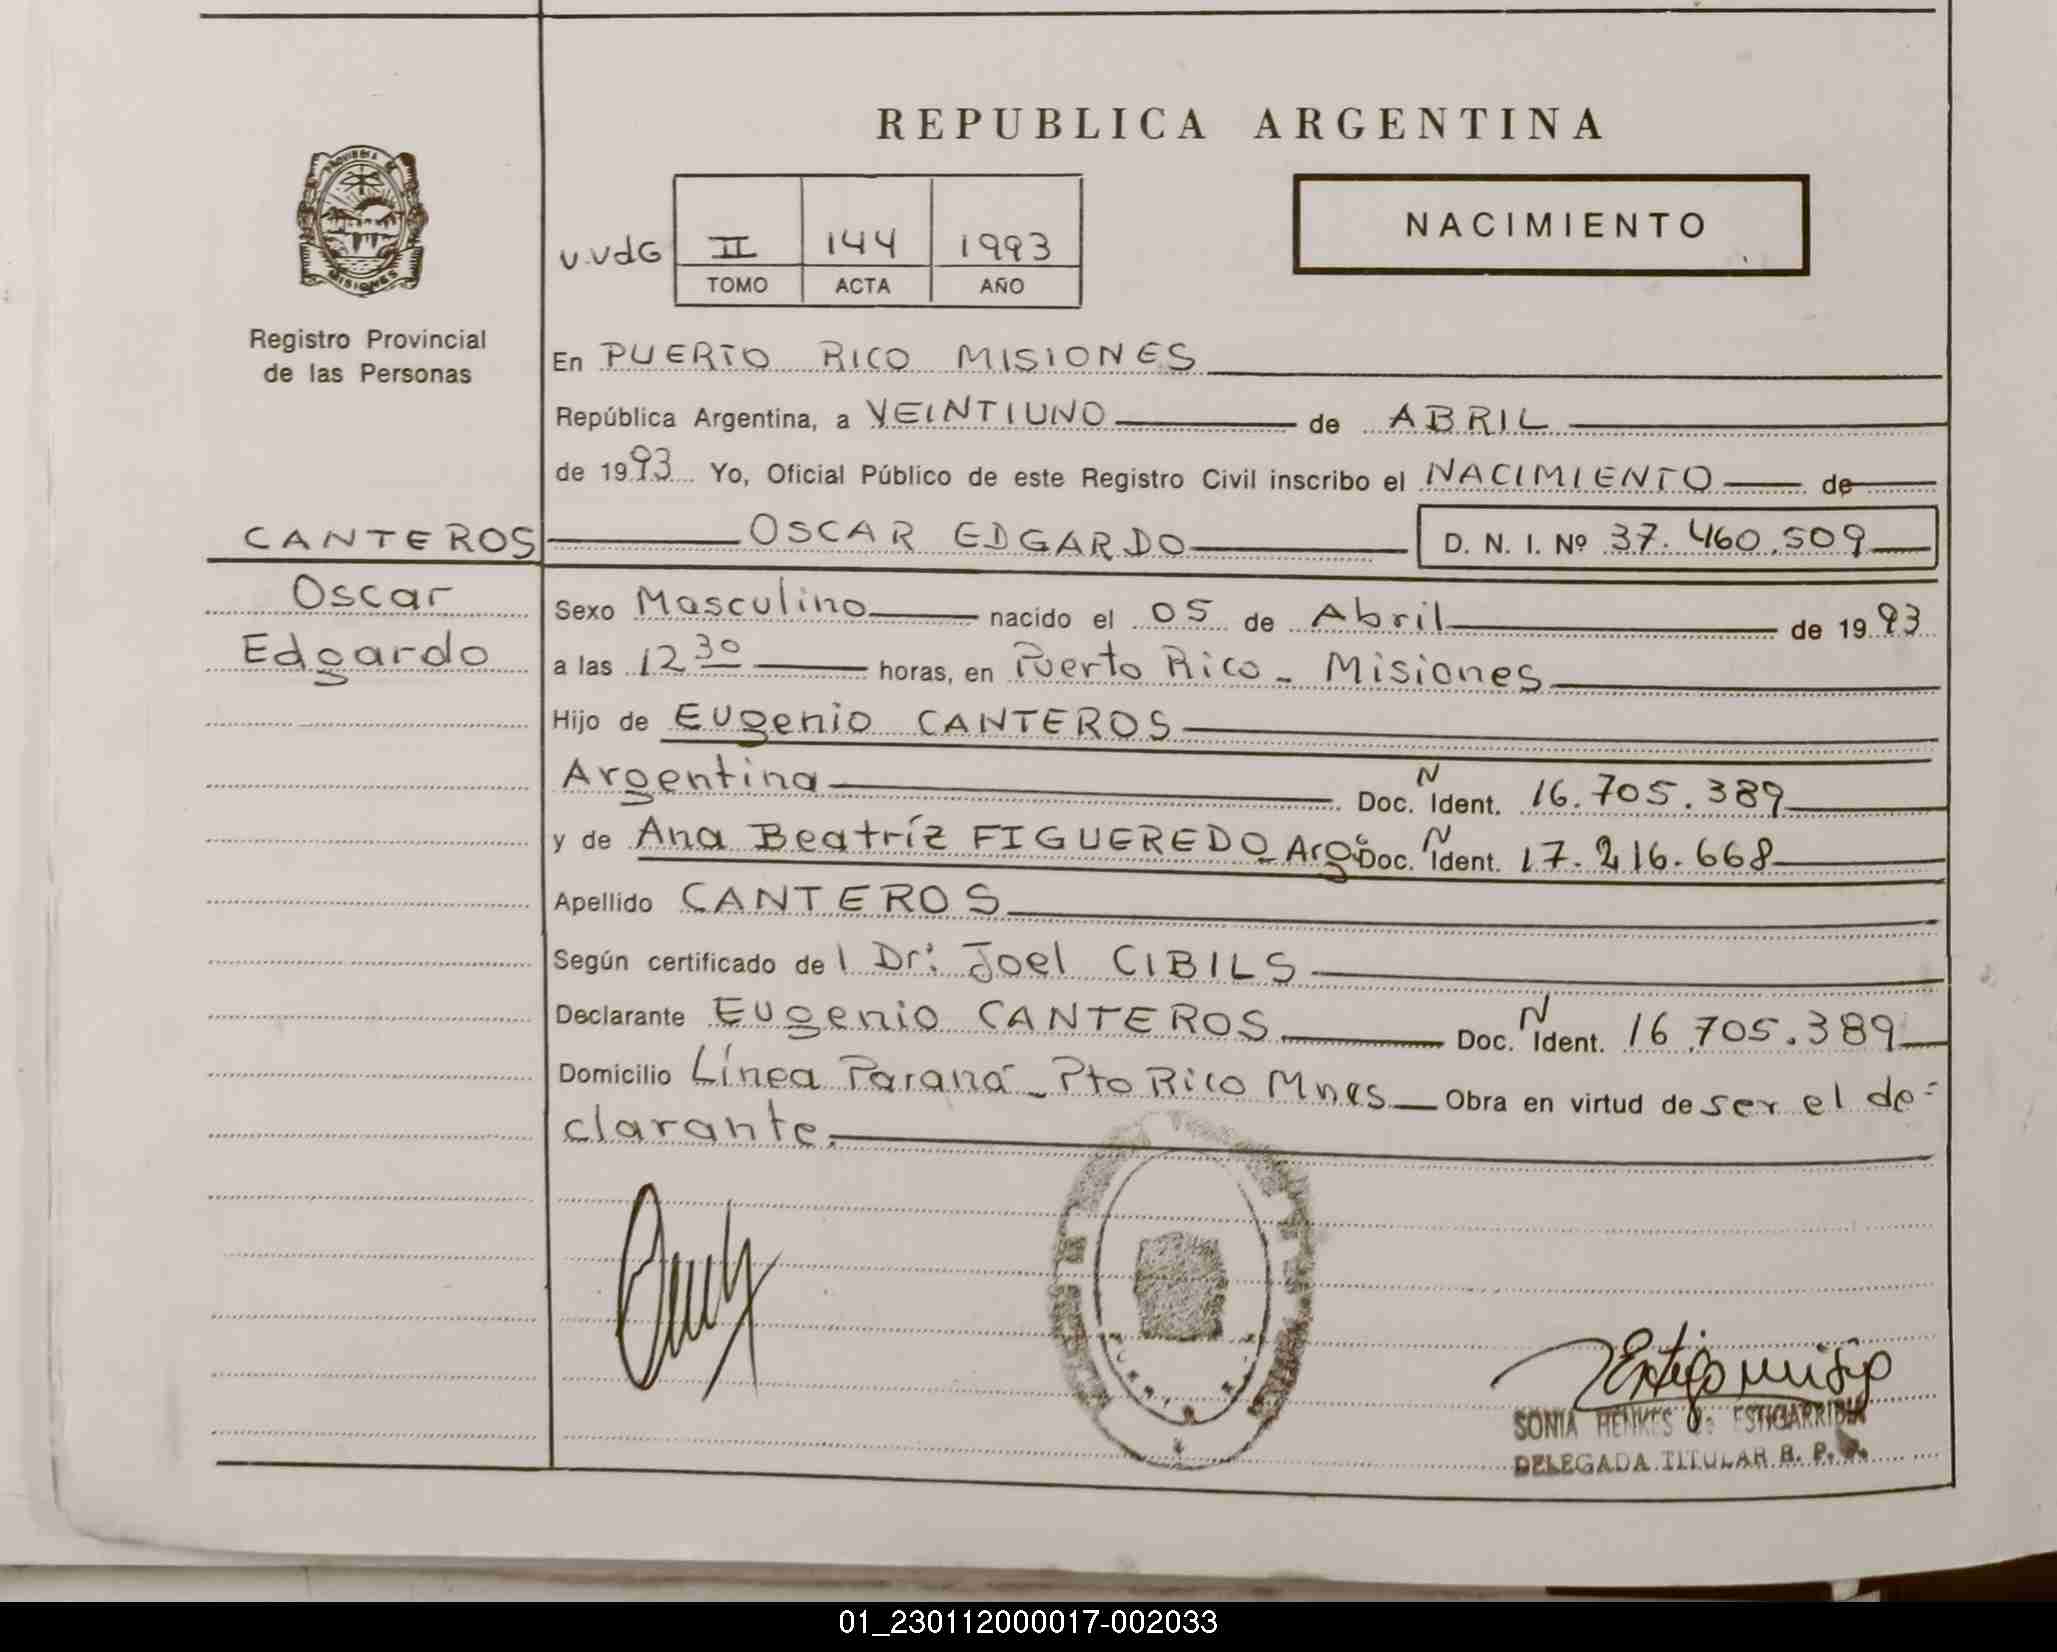 REPUBLICA ARGENTINA
PROVINCIA DE MISIONES
Registro Provincial
de las Personas
NACIMIENTO
U.VdG II 144 1993
TOMO ACTA AÑO
En PUERTO RICO MISIONES
República Argentina, a VEINTIUNO de ABRIL
de 1993 Yo, Oficial Público de este Registro Civil inscribo el NACIMIENTO de
CANTEROS OSCAR EDGARDO D. N. I. Nº 37.460.509
Oscar
Edgardo
Sexo Masculino nacido el 05 de Abril de 1993
a las 12 30 horas, en Puerto Rico - Misiones
Hijo de Eugenio CANTEROS
Argentina Doc. N Ident. 16.705.389
y de Ana Beatríz FIGUEREDO Arg. Doc. N Ident. 17.216.668
Apellido CANTEROS
Según certificado del Dr: Joel CIBILS
Declarante Eugenio CANTEROS Doc. N Ident. 16.705.389
Domicilio Línea Paraná - Pto Rico Mnes Obra en virtud de ser el de-
clarante.
SONIA HENKES ESTIGARRIBIA
DELEGADA TITULAR
01_230112000017-002033